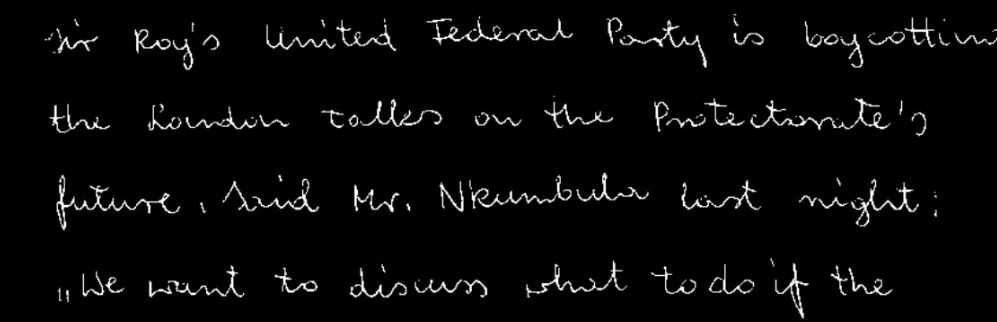 Sir Roy's United Federal Party is boycottin
the London talks on the Protectorate's
future. Said Mr. Nkumbula last night:
„We want to discuss what to do if the